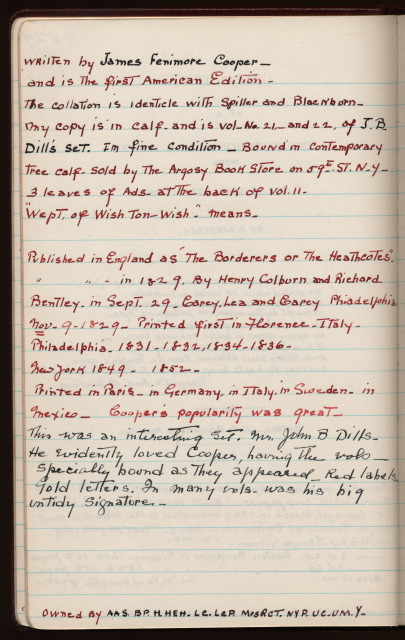 written by James Fenimore Cooper—
and is the first American Edition-
The collation is identicle with Spiller and Blackburn-
my copy is in calf- and is vol-No. 21- and 22, of J.B.
Dill's set. Im fine condition- Bound in contemporary
Tree calf- Sold by The Argosy Book Store on 59th ST. N.Y-
3 leaves of Ads- at the back of vol. 11-
"Wept, of Wish Ton-Wish-" means-
Published in England as "The Borderers or The Heathcotes".
" " " - in 1829. By Henry Colburn and Richard
Bentley- in Sept. 29- Carey, Lea and Carey Phiadelphia
Nov- 9-1829- Printed first in Florence-Italy-
Philadelphia- 1831-1832, 1834-1836-
New York 1849- 1852-
Printed in Paris- in Germany, in Italy, in Sweden- in
Mexico- Cooper's popularity was great-
This was an interesting set. Mr. John B Dills-
He evidently loved Cooper, having the vols-
specially bound as they appeared- Red labels
Gold letters. In many vols- was his big
untidy signature-
Owned By AAS. BP. H. HEH- LC. LCP. MBSRCT. NYP. UC. UM. Y-